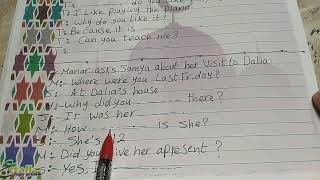 do you like
T: I Like Playing the Piano
why do you like it?
T: Because it is
Can you teach me?
T:
Manar asks Samya about her visit to Dalia
M: Where were you Last Friday?
S: At Dalia's house
M: Why did you there?
S: It was her
M: How is she?
S: She's 12
M: Did you give her apresent?
S: Yes, I